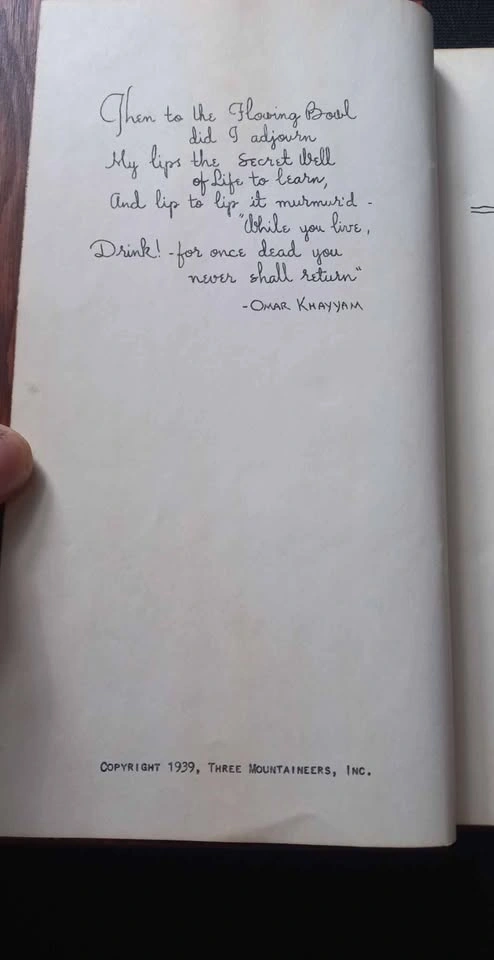 Then to the Flowing Bowl
did I adjourn
My lips the Secret Well
of Life to learn,
And lip to lip it murmur'd -
"While you live,
Drink! - for once dead you
never shall return"
- OMAR KHAYYAM
COPYRIGHT 1939, THREE MOUNTAINEERS, INC.